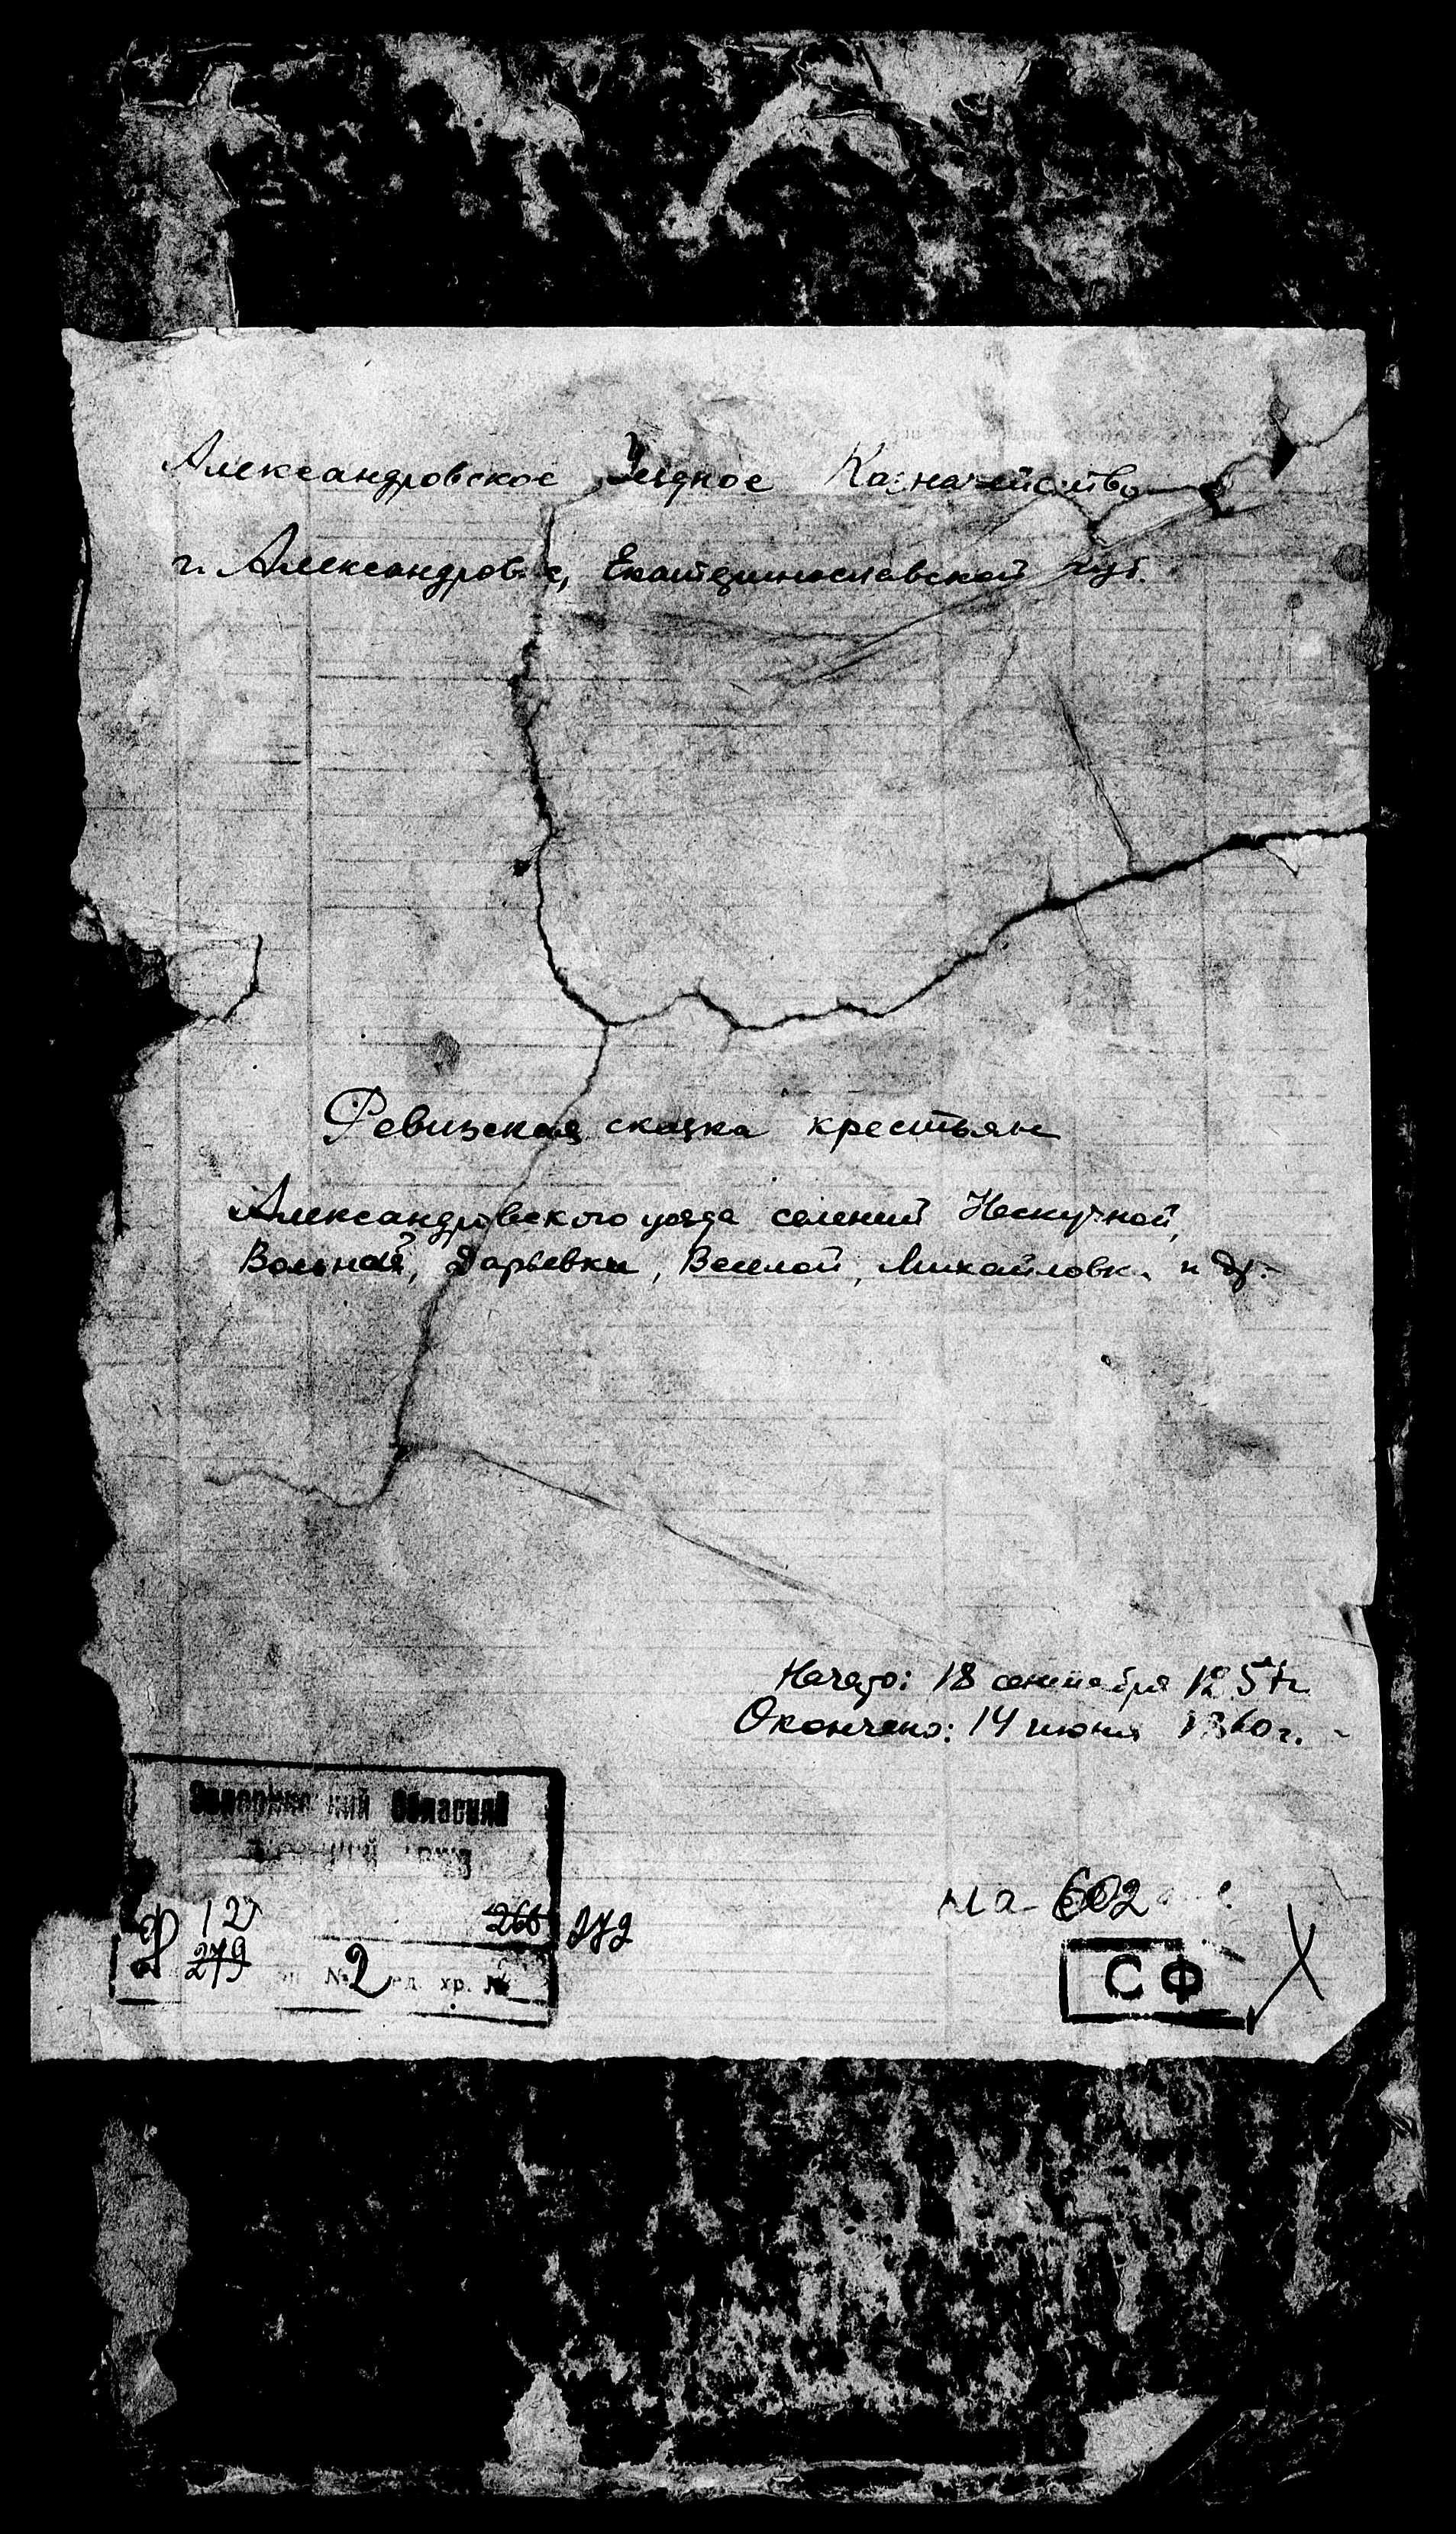 Александровское Уездное Казначейство
г. Александровск, Екатеринославской губ.
Ревизская сказка крестьян
Александровского уезда селений Нескучной,
Вольной, Дарьевки, Веселой, Михайловк. и др.
Начато: 18 сентября
Окончено: 14 июня 1860г.
Запорожский Областной
Ф 12 266 272
279 № 2 ед. хр. №
на 602
СФ